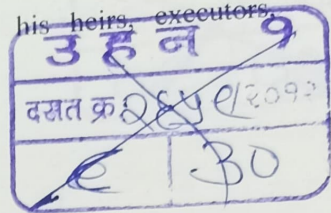 his heirs, executors,
उ ह न १
दस्त क्र २६५९/२०१२
९ ३०